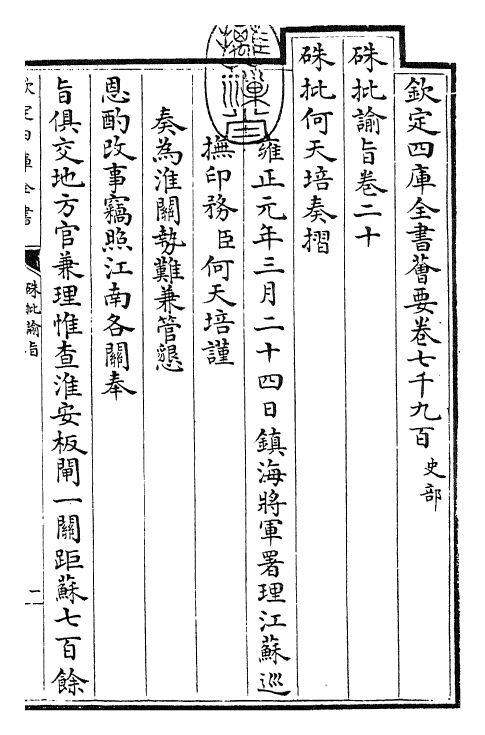 欽定四庫全書薈要卷七千九百 史部
硃批諭旨卷二十
硃批何天培奏摺
雍正元年三月二十四日鎮海將軍署理江蘇巡
撫印務臣何天培謹
奏為淮關勢難兼管懇
恩酌改事竊照江南各關奉
旨俱交地方官兼理惟查淮安板閘一關距蘇七百餘
欽定四庫全書
硃批諭旨
二